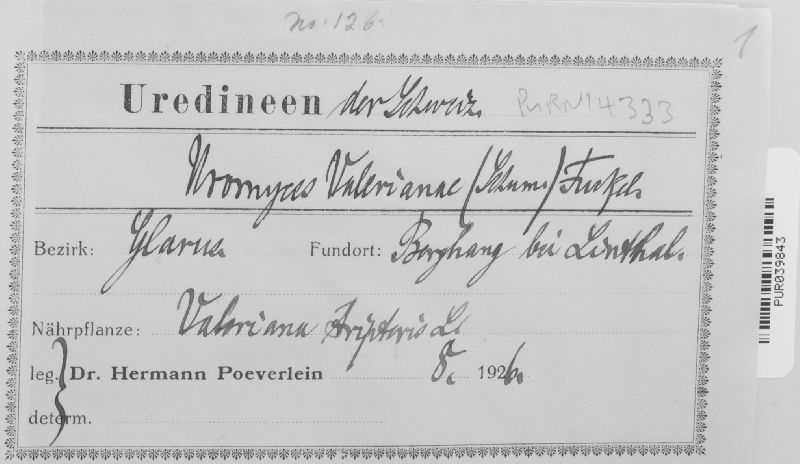 No. 126.
1
Uredineen der Schweiz.
PURN14333
Uromyces Valerianae (Schum.) Fuckel.
Bezirk: Glarus. Fundort: Berghang bei Linthal.
Nährpflanze: Valeriana tripteris L.
leg. Dr. Hermann Poeverlein 8. 1926.
determ.
PUR039843